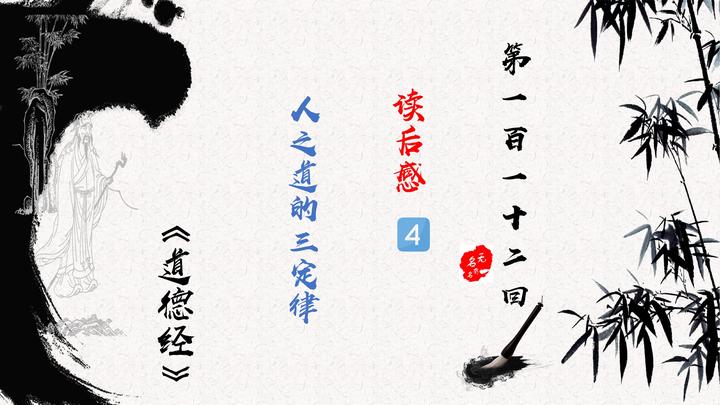 第一百一十二回
读后感
4
人之道的三定律
《道德经》